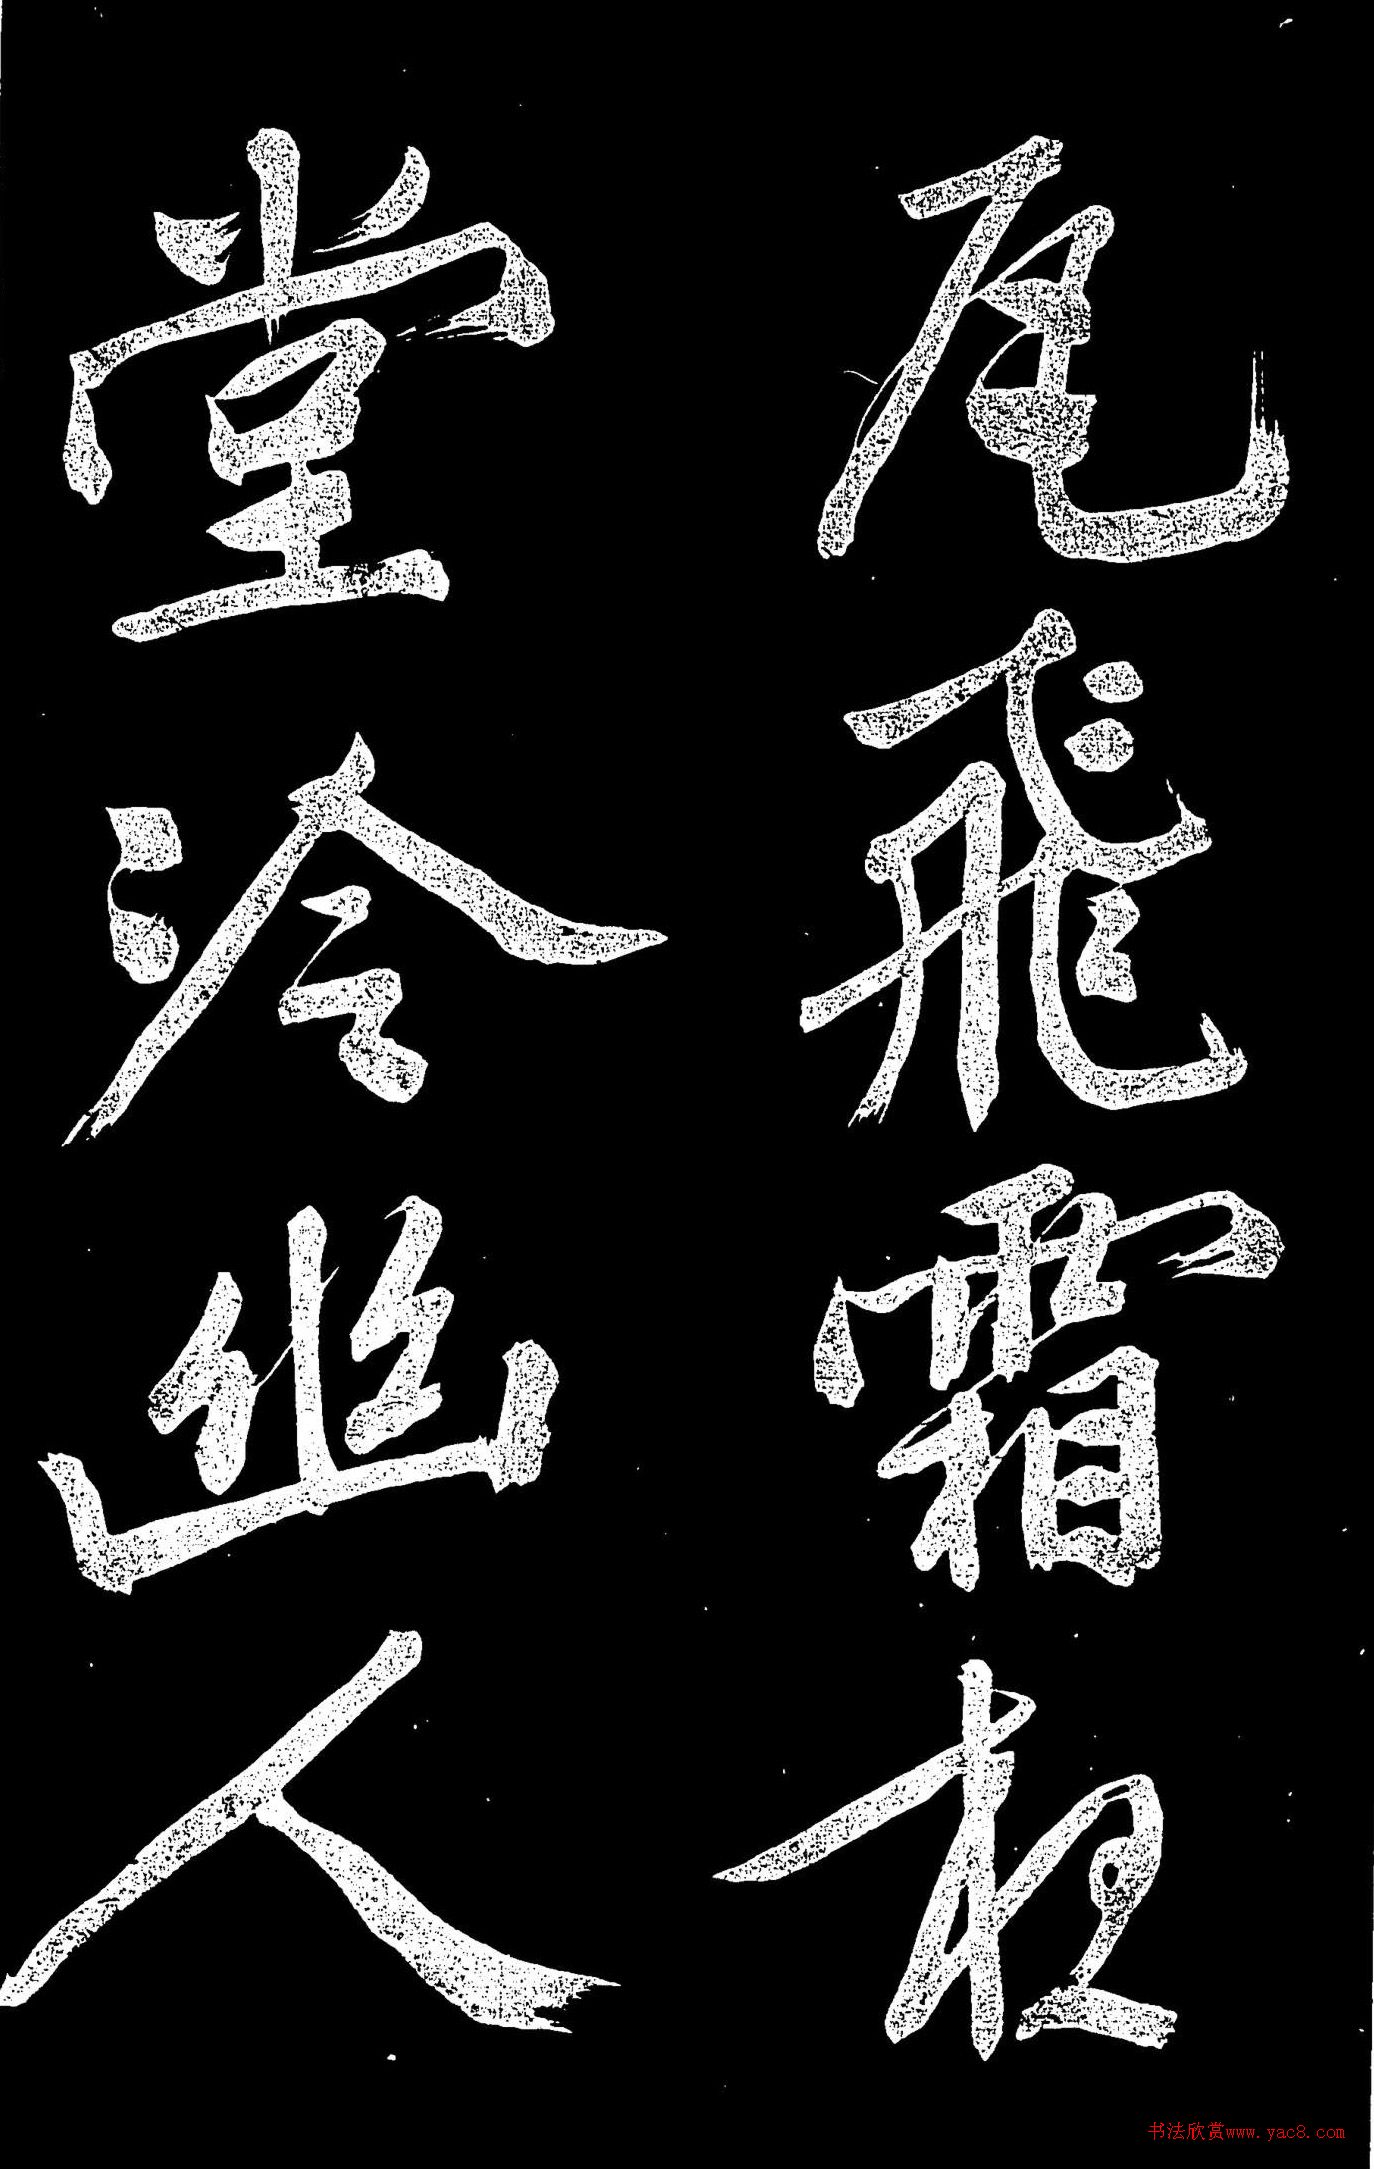 尾飛霜夜
堂冷幽人
书法欣赏www.yac8.com